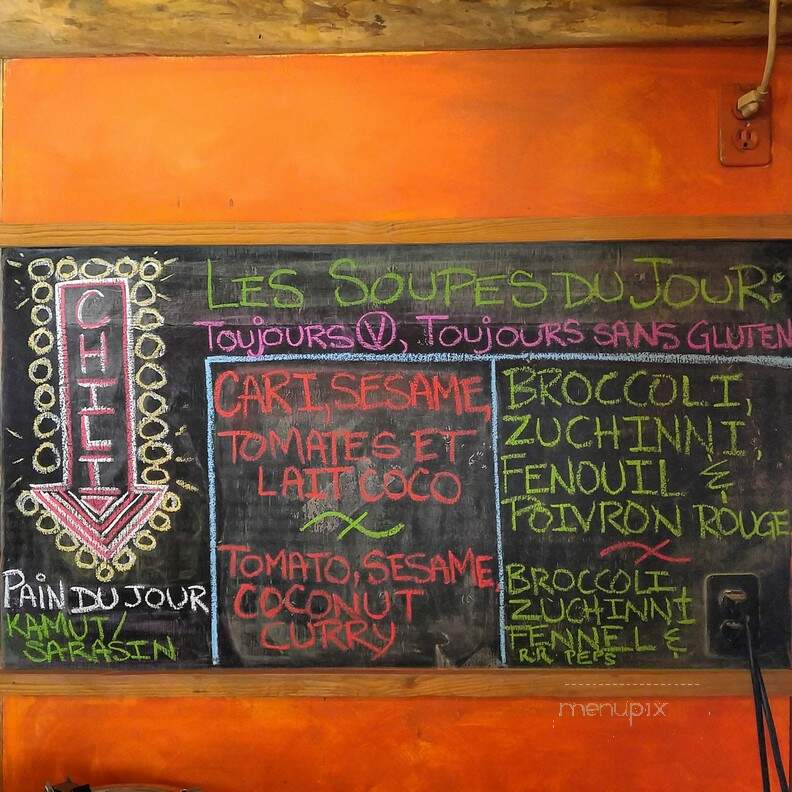 LES SOUPES DU JOUR:
TOUJOURS V, TOUJOURS SANS GLUTEN
CHILI
CARI, SESAME,
TOMATES ET
LAIT COCO
TOMATO, SESAME
COCONUT
CURRY
BROCCOLI,
ZUCHINNI,
FENOUIL &
POIVRON ROUGE
BROCCOLI,
ZUCHINNI
FENNEL &
R.R. PEPS
PAIN DU JOUR
KAMUT/
SARASIN
menupix